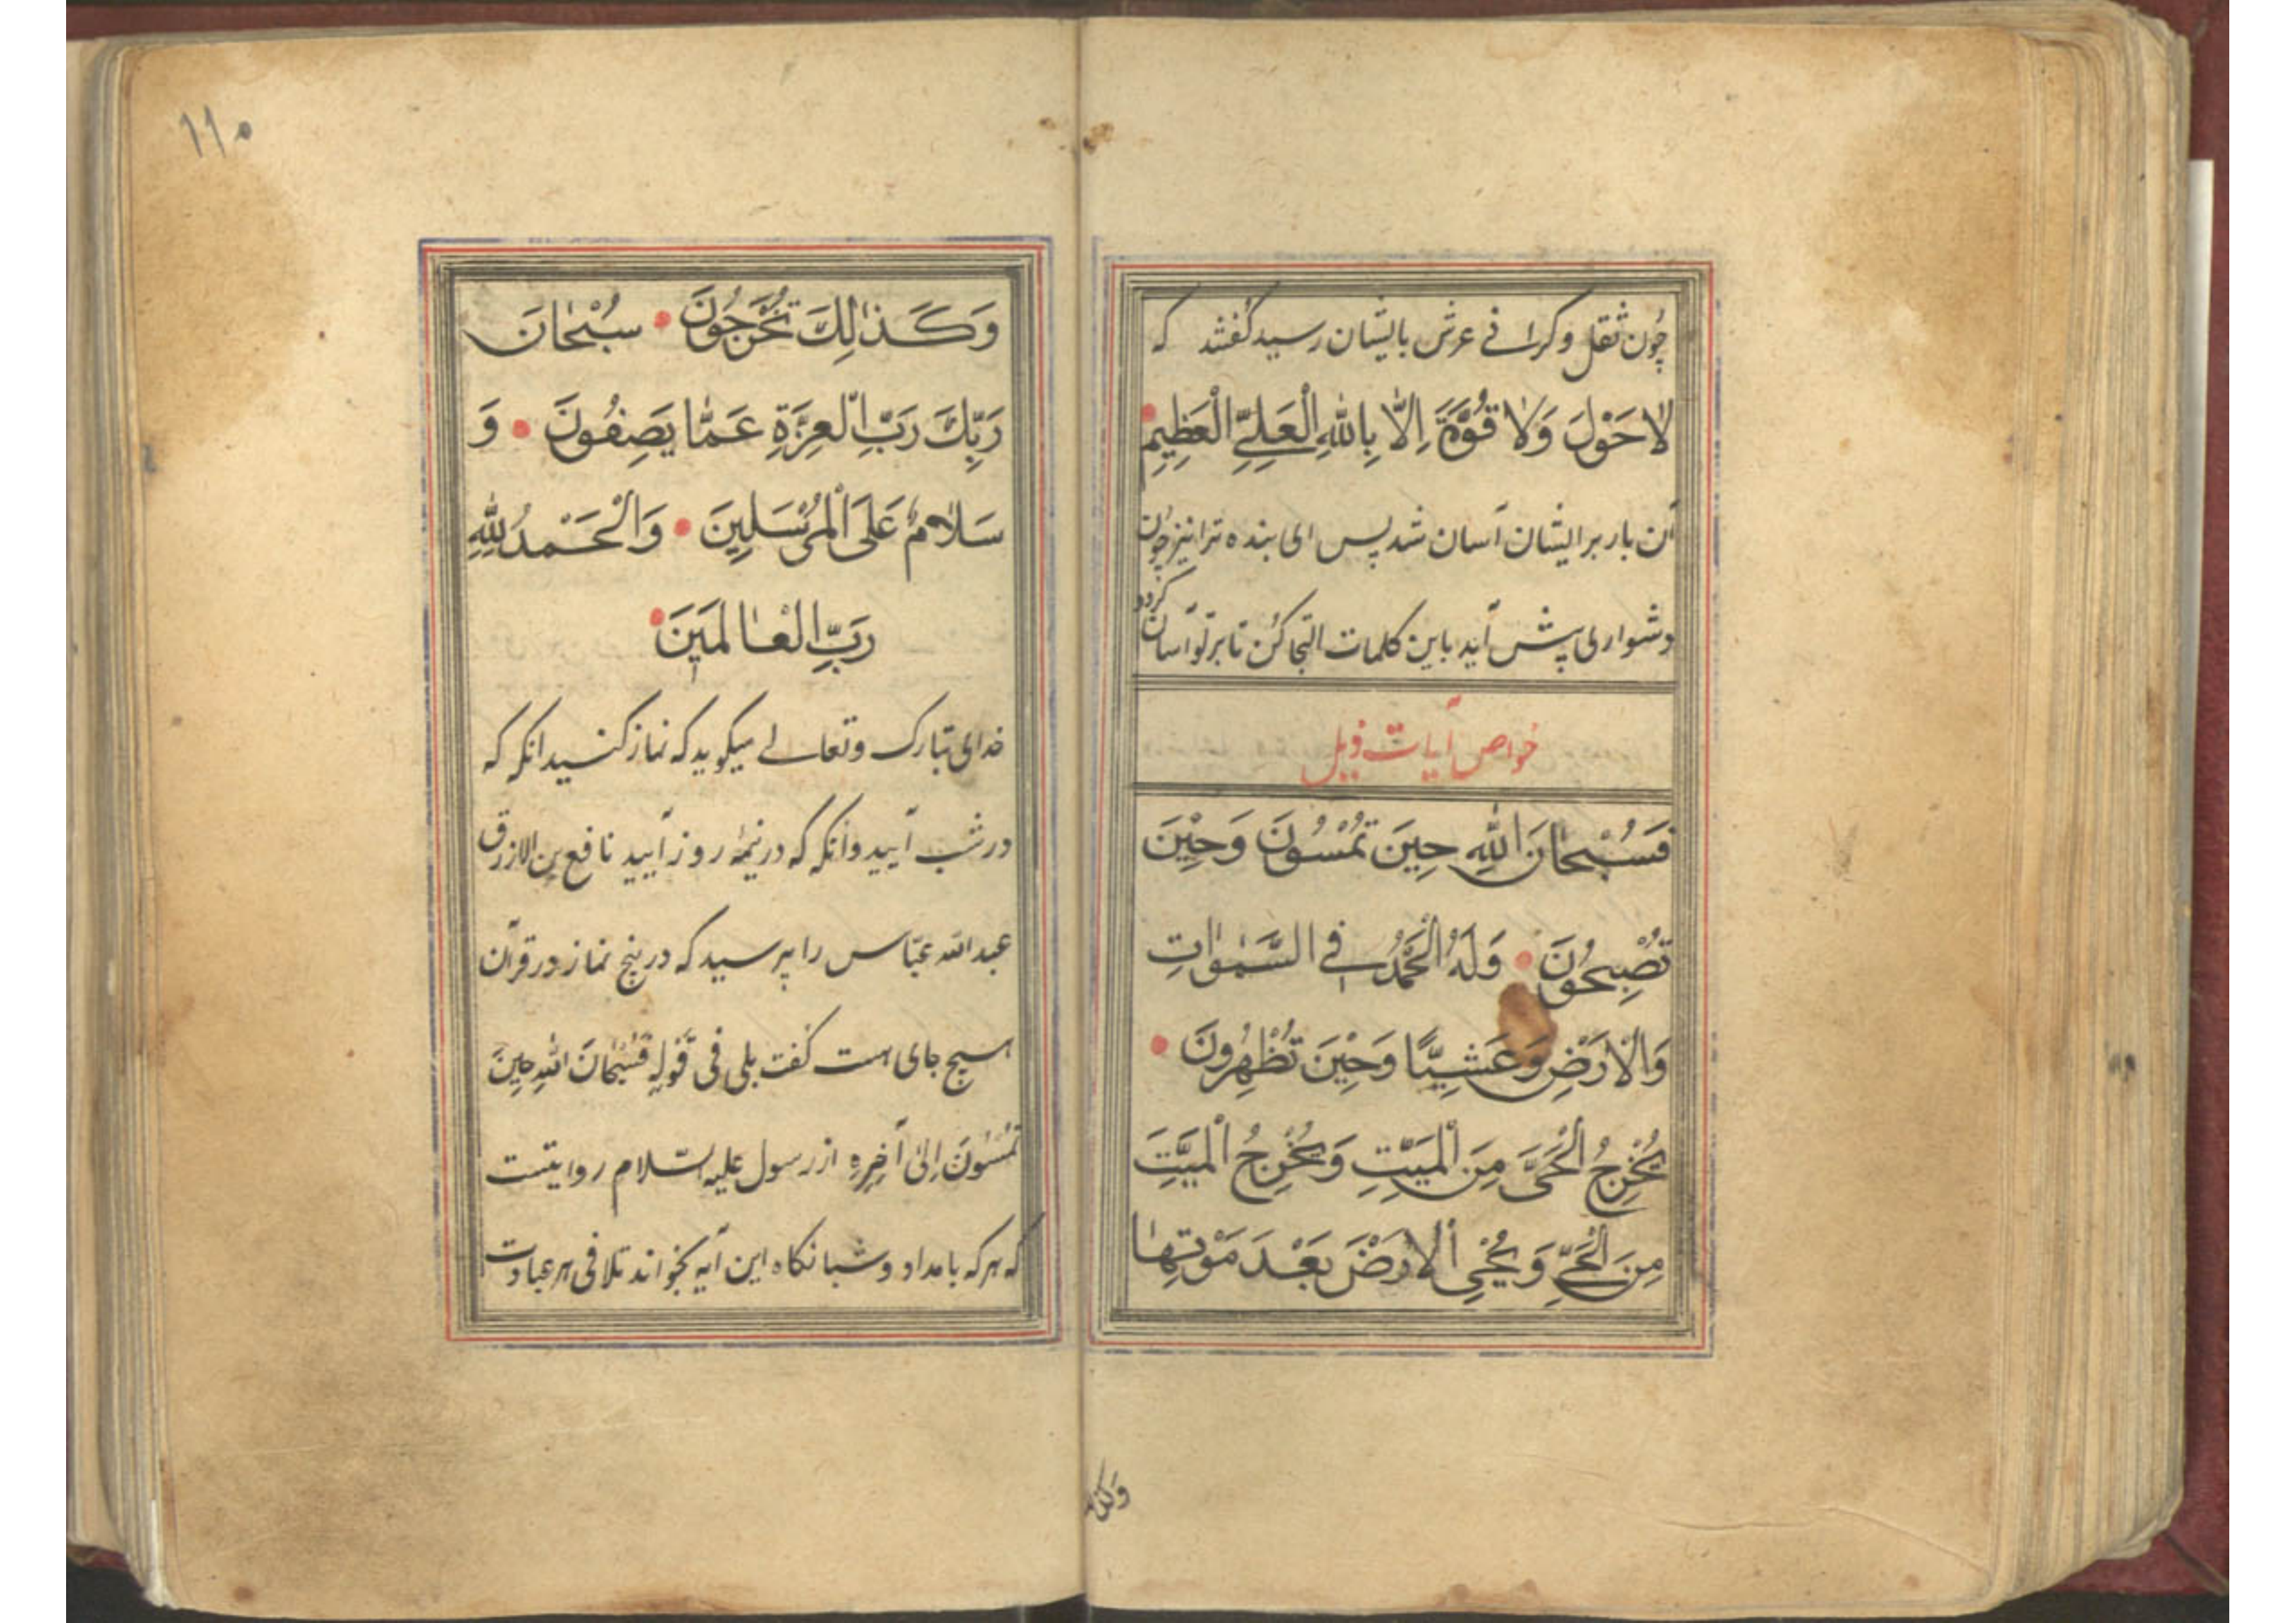 چون ثقل و کرانے عرش بایشان رسید کفتند که
لاٰ حَوْلَ وَلاٰ قُوَّةَ اِلاّٰ بِاللّٰهِ الْعَلِیِّ الْعَظِیمِ
آن بار بر ایشان آسان شد پس ای بنده ترا نیز چون
دشواری پیش آید باین کلمات التجا کن تا بر تو آسان کردد
خواص آیات ذیل
فَسُبْحٰانَ اللّٰهِ حِینَ تُمْسُونَ وَحِیْنَ
تُصْبِحُونَ وَلَهُ الْحَمْدُ فِے السَّمٰوٰاتِ
وَالْاَرْضِ وَعَشِیًّا وَحِیْنَ تُظْهِرُونَ
یُخْرِجُ الْحَیَّ مِنَ الْمَیِّتِ وَیُخْرِجُ الْمَیِّتَ
مِنَ الْحَیِّ وَیُحْیِی الْاَرْضَ بَعْدَ مَوْتِهٰا
وکذلک
١١٠
وَکَذٰلِكَ تُخْرَجُونَ سُبْحٰانَ
رَبِّكَ رَبِّ الْعِزَّةِ عَمّٰا یَصِفُونَ وَ
سَلاٰمٌ عَلَی الْمُرْسَلِینَ وَالْحَمْدُ لِلّٰهِ
رَبِّ الْعٰالَمَینَ
خدای تبارک و تعالے میکوید که نماز کنید انکه که
در شب آیید وانکه که در نیمه روز آیید نافع بن الازرق
عبد الله عبّاس را پرسید که در پنج نماز در قرآن
هیچ جای هست کفت بلی فی قَوْلِهِ فَسُبْحٰانَ اللّٰهِ حِینَ
تُمْسُونَ اِلیٰ آخِرِهِ از رسول علیه السّلام روایتست
که هر که بامداد و شبانکاه این آیه بخواند تلافی هر عبادت